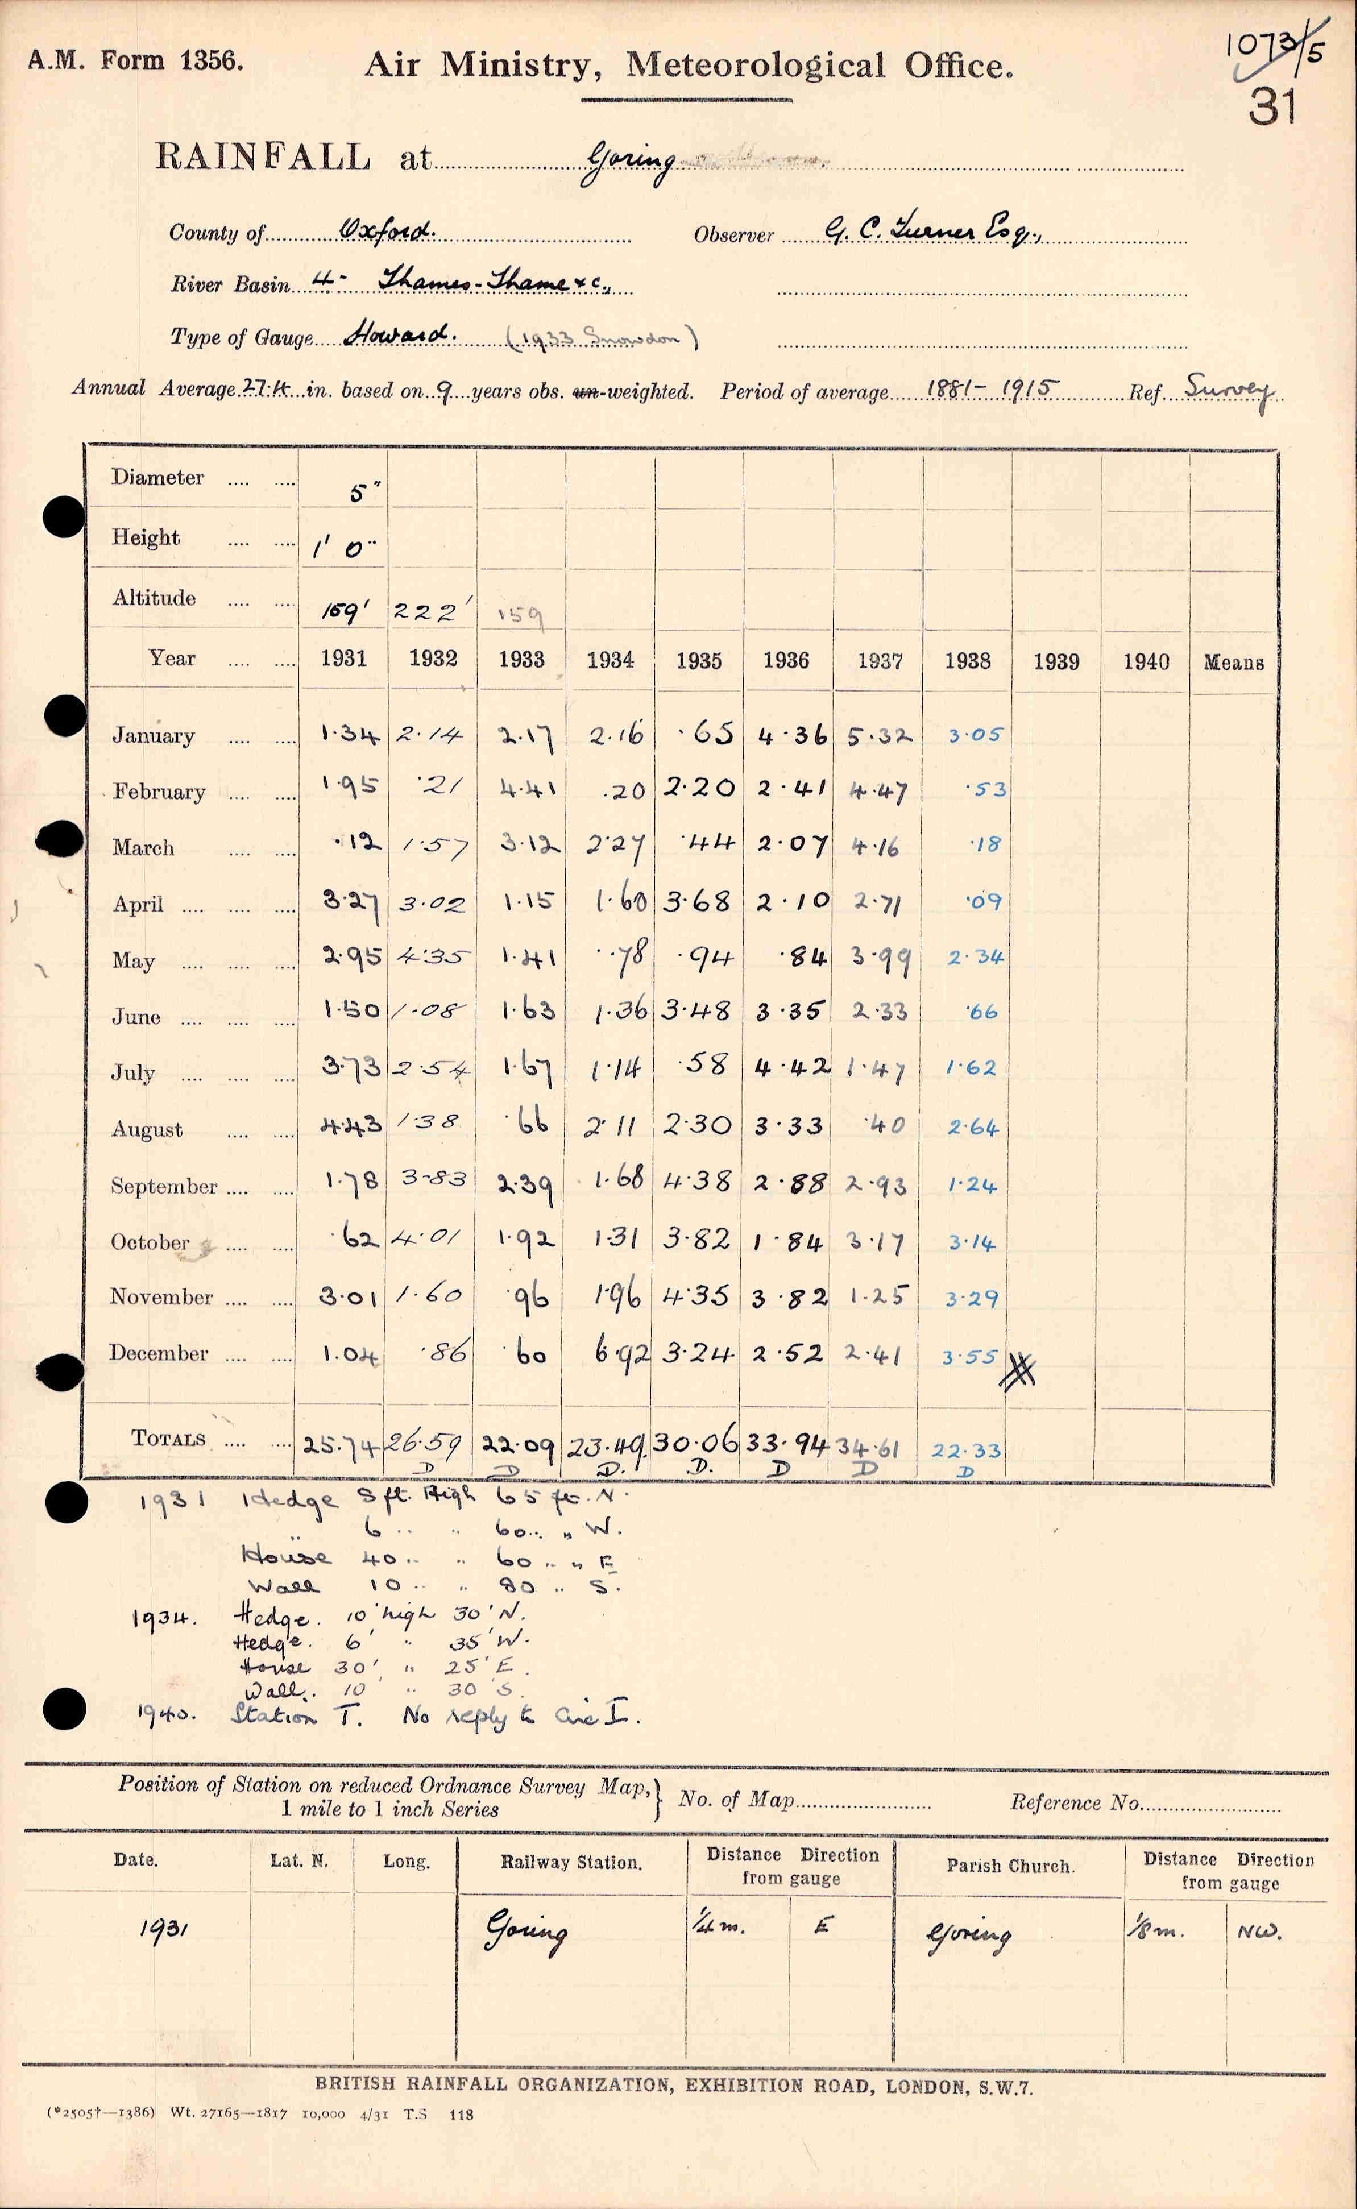 1073/5
A.M. Form 1356. Air Ministry, Meteorological Office.
31
RAINFALL at Goring
County of Oxford. Observer G. C. Turner Esq.,
River Basin 4- Thames-Thame &c.,
Type of Gauge Howard. (1933 Snowdon)
Annual Average 27.4 in. based on 9 years obs. un-weighted. Period of average 1881-1915 Ref. Survey
Diameter .... .... 5"
Height .... .... 1' 0"
Altitude .... .... 159' 222' 159
Year .... .... 1931 1932 1933 1934 1935 1936 1937 1938 1939 1940 Means
January .... .... 1.34 2.14 2.17 2.16 .65 4.36 5.32 3.05
February .... .... 1.95 .21 4.41 .20 2.20 2.41 4.47 .53
March .... .... .12 1.57 3.12 2.27 .44 2.07 4.16 .18
April .... .... .... 3.27 3.02 1.15 1.60 3.68 2.10 2.71 .09
May .... .... .... 2.95 4.35 1.41 .78 .94 .84 3.99 2.34
June .... .... .... 1.50 1.08 1.63 1.36 3.48 3.35 2.33 .66
July .... .... .... 3.73 2.54 1.67 1.14 .58 4.42 1.47 1.62
August .... .... 4.43 1.38 .66 2.11 2.30 3.33 .40 2.64
September .... .... 1.78 3.83 2.39 1.68 4.38 2.88 2.93 1.24
October .... .... .62 4.01 1.92 1.31 3.82 1.84 3.17 3.14
November .... .... 3.01 1.60 .96 1.96 4.35 3.82 1.25 3.29
December .... .... 1.04 .86 .60 6.92 3.24 2.52 2.41 3.55
TOTALS .... .... 25.74 26.59 22.09 23.49 30.06 33.94 34.61 22.33
D D D. D. D D D
1931 Hedge 8 ft. High 65 ft. N.
6 .. " 60 .. " W.
House 40 .. " 60 .. " E
Wall 10 .. " 80 .. S.
1934. Hedge. 10' high 30' N.
Hedge. 6' " 35' W.
House 30' " 25' E.
Wall. 10' " 30' S.
1940. Station T. No reply to Circ I.
Position of Station on reduced Ordnance Survey Map,} No. of Map Reference No.
1 mile to 1 inch Series
Date. Lat. N. Long. Railway Station. Distance Direction from gauge Parish Church. Distance Direction from gauge
1931 Goring 1/4 m. E Goring 1/8 m. NW.
BRITISH RAINFALL ORGANIZATION, EXHIBITION ROAD, LONDON, S.W.7.
(*2505†—1386) Wt. 27165—1817 10,000 4/31 T.S 118